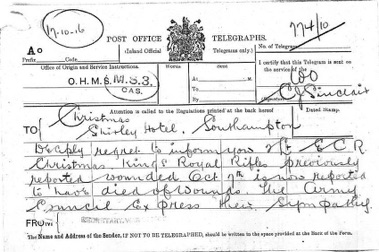 17-10-16
774/10
POST OFFICE TELEGRAPHS.
A O
(Inland Official Telegrams only.)
No. of Telegram
Prefix. Code.
Office of Origin and Service Instructions.
Words
Sent
I certify that this Telegram is sent on the service of the
O.H.M.S. M.S.3.
CAS.
At
M.
To
By
Sinclair
Attention is called to the Regulations printed at the back hereof
Dated Stamp.
TO
Christmas
Shirley Hotel. Southampton
Deeply regret to inform you 2/Lt E.C.R
Christmas King's Royal Rifles previously
reported wounded Oct 7th is now reported
to have died of wounds. The Army
Council express their sympathy.
FROM
The Name and Address of the Sender, IF NOT TO BE TELEGRAPHED, should be written in the space provided at the Back of the Form.